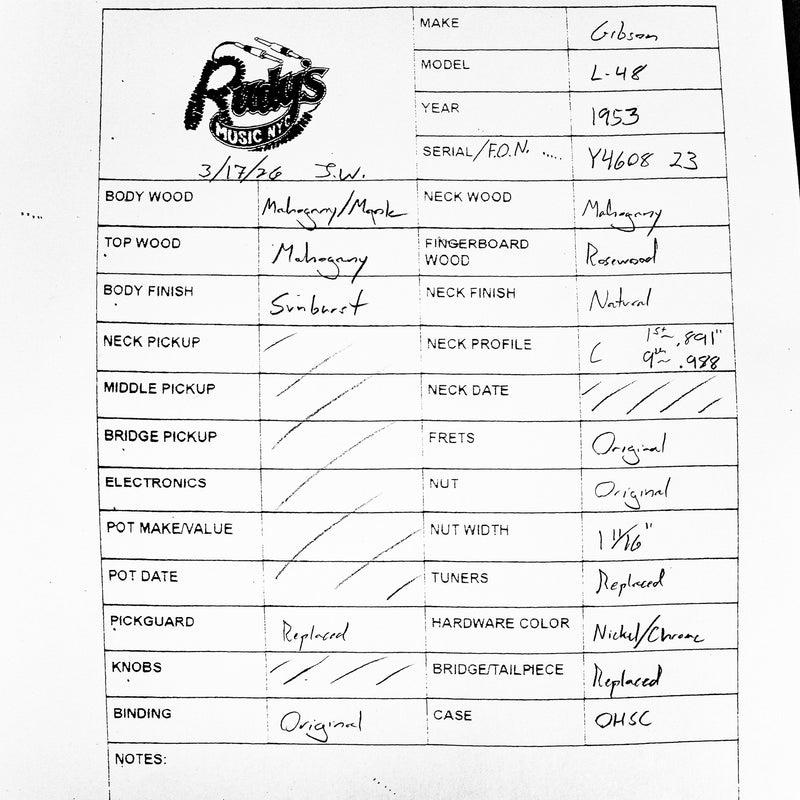 Rudy's
MUSIC NYC
3/17/26 J.W.
MAKE Gibson
MODEL L-48
YEAR 1953
SERIAL/F.O.N. ..... Y4608 23
BODY WOOD Mahogany/Maple NECK WOOD Mahogany
TOP WOOD Mahogany FINGERBOARD WOOD Rosewood
BODY FINISH Sunburst NECK FINISH Natural
NECK PICKUP NECK PROFILE C 1st~ .891"
9th~ .988
MIDDLE PICKUP NECK DATE
BRIDGE PICKUP FRETS Original
ELECTRONICS NUT Original
POT MAKE/VALUE NUT WIDTH 1 11/16"
POT DATE TUNERS Replaced
PICKGUARD Replaced HARDWARE COLOR Nickel/Chrome
KNOBS BRIDGE/TAILPIECE Replaced
BINDING Original CASE OHSC
NOTES: